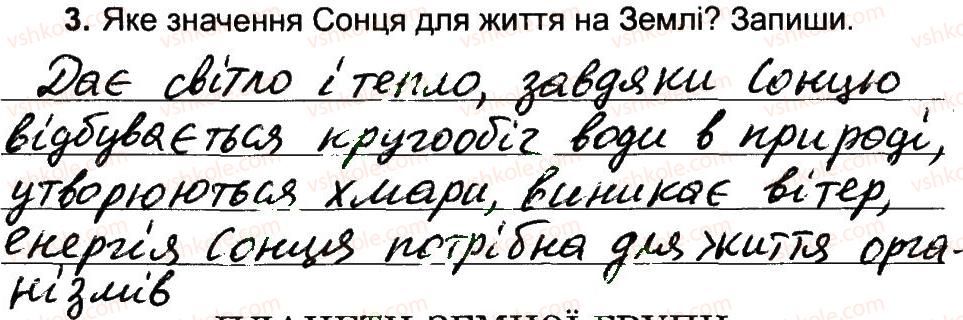 3. Яке значення Сонця для життя на Землі? Запиши.
Дає світло і тепло, завдяки Сонцю
відбувається кругообіг води в природі,
утворюються хмари, виникає вітер,
енергія Сонця потрібна для життя орга-
нізмів
ПЛАНЕТИ ЗЕМНОЇ ГРУПИ